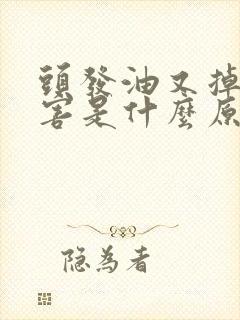 頭發油又掉
害是什麼原
隐為者